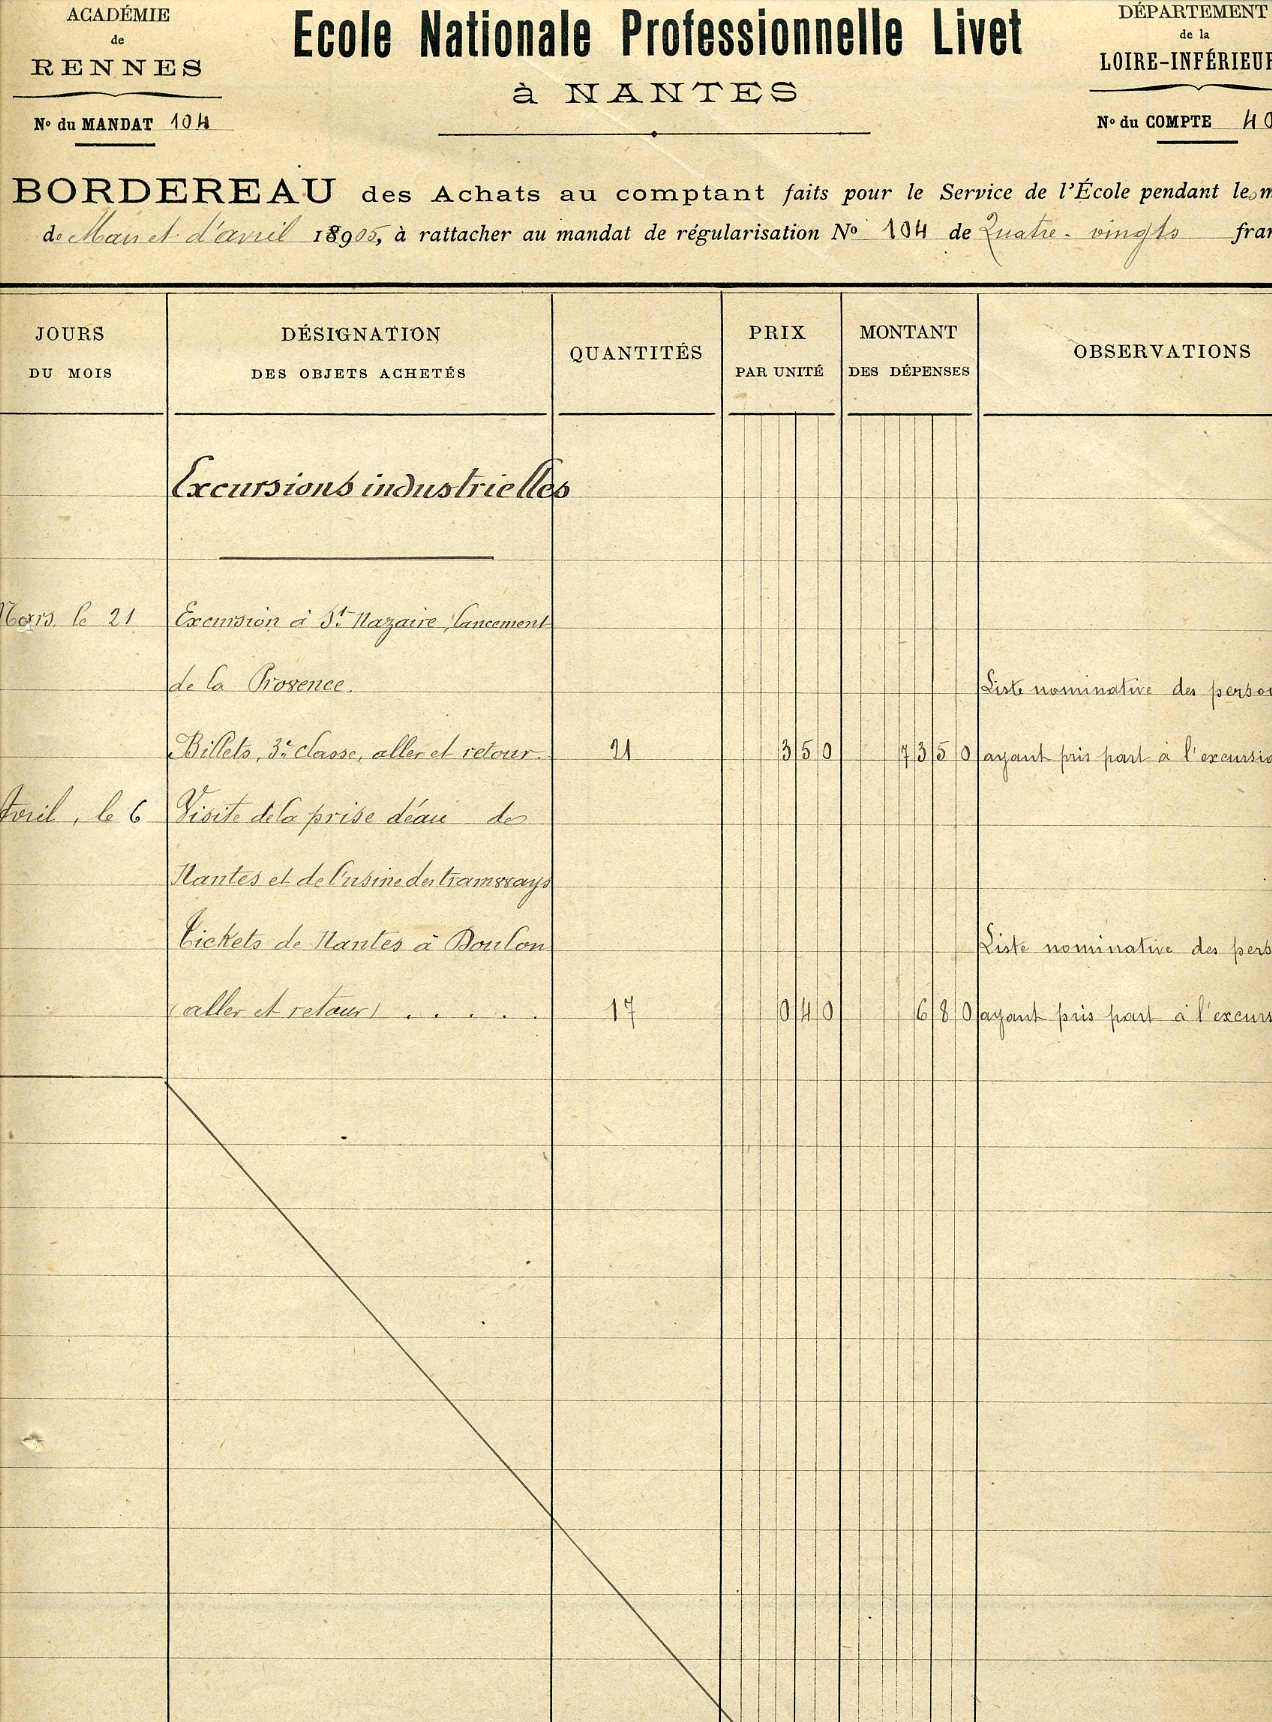 ACADÉMIE
de
RENNES
N° du MANDAT 104
Ecole Nationale Professionnelle Livet
à NANTES
DÉPARTEMENT
de la
LOIRE-INFÉRIEUR
N° du COMPTE 40
BORDEREAU des Achats au comptant faits pour le Service de l'École pendant les m
de Mars et d'avril 18905, à rattacher au mandat de régularisation N° 104 de Quatre-vingts fran
JOURS
DU MOIS
DÉSIGNATION
DES OBJETS ACHETÉS
QUANTITÉS
PRIX
PAR UNITÉ
MONTANT
DES DÉPENSES
OBSERVATIONS
Excursions industrielles
Mars, le 21 Excursion à St. Nazaire, lancement
de la Provence. Liste nominative des person
Billets, 3e classe, aller et retour. 21 3 50 73 50 ayant pris part à l'excursio
Avril, le 6 Visite de la prise d'eau de
Nantes et de l'usine des tramways
Tickets de Nantes à Doulon Liste nominative des pers
(aller et retour) . . . . . 17 0 40 6 80 ayant pris part à l'excurs